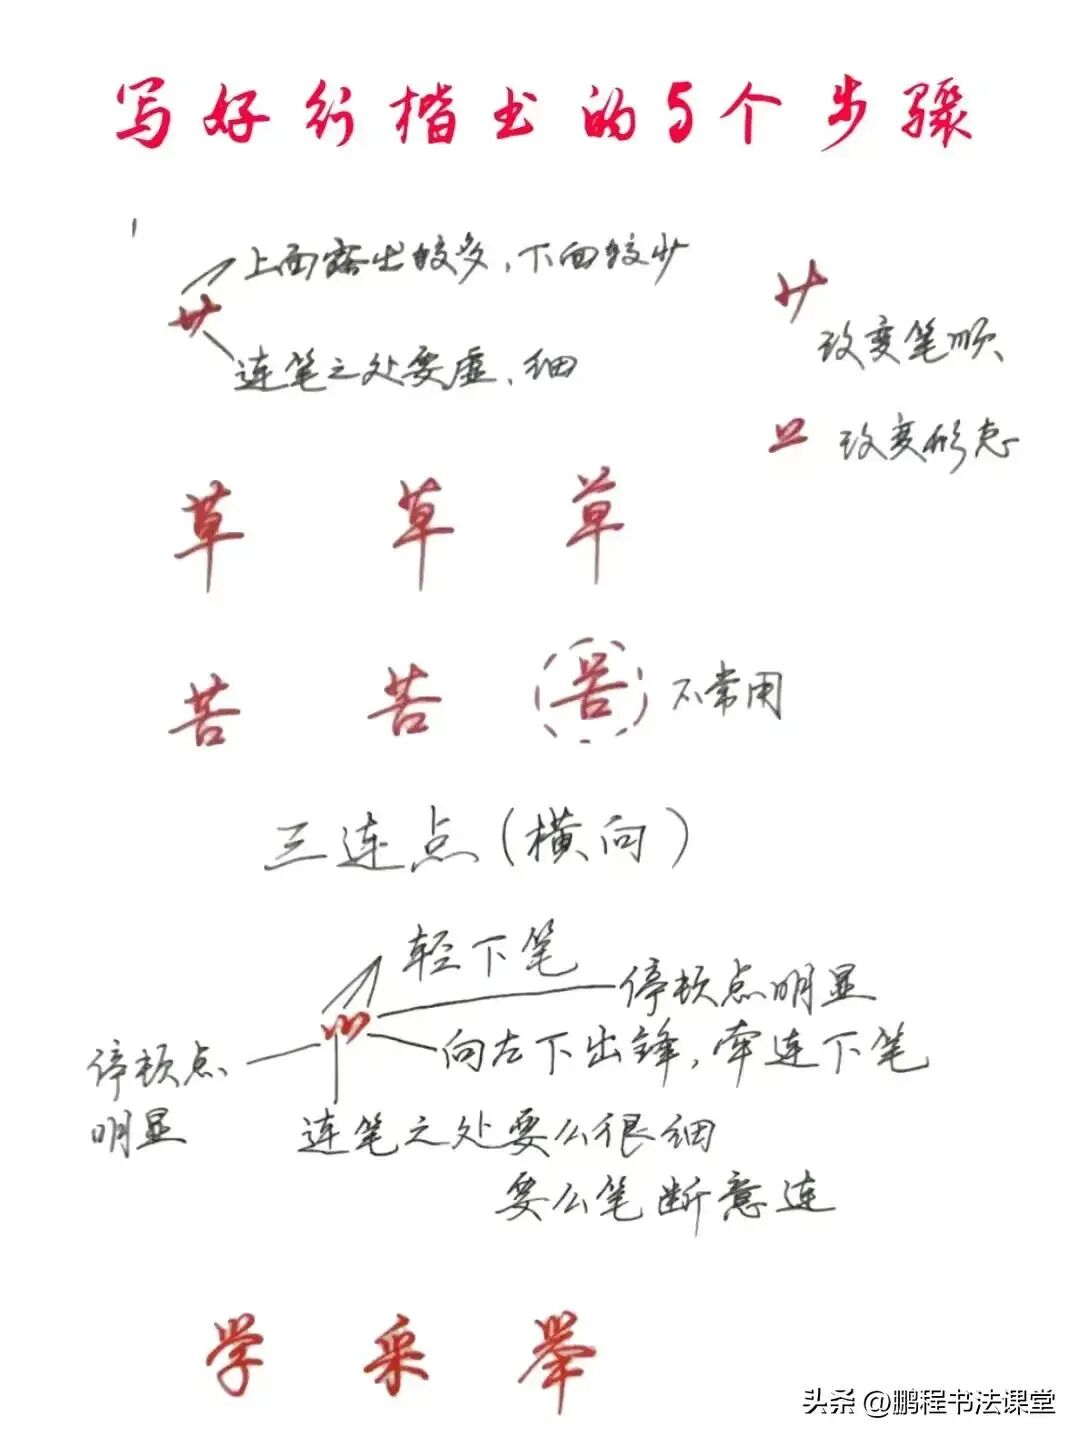 写好行楷书的5个步骤
上面露出较多,下面较少
连笔之处要虚、细
改变笔顺
改变形态
草 草 草
苦 苦 苦 不常用
三连点(横向)
轻下笔
停顿点明显
向左下出锋,牵连下笔
停顿点
明显
连笔之处要么很细
要么笔断意连
学 采 举
头条 @鹏程书法课堂